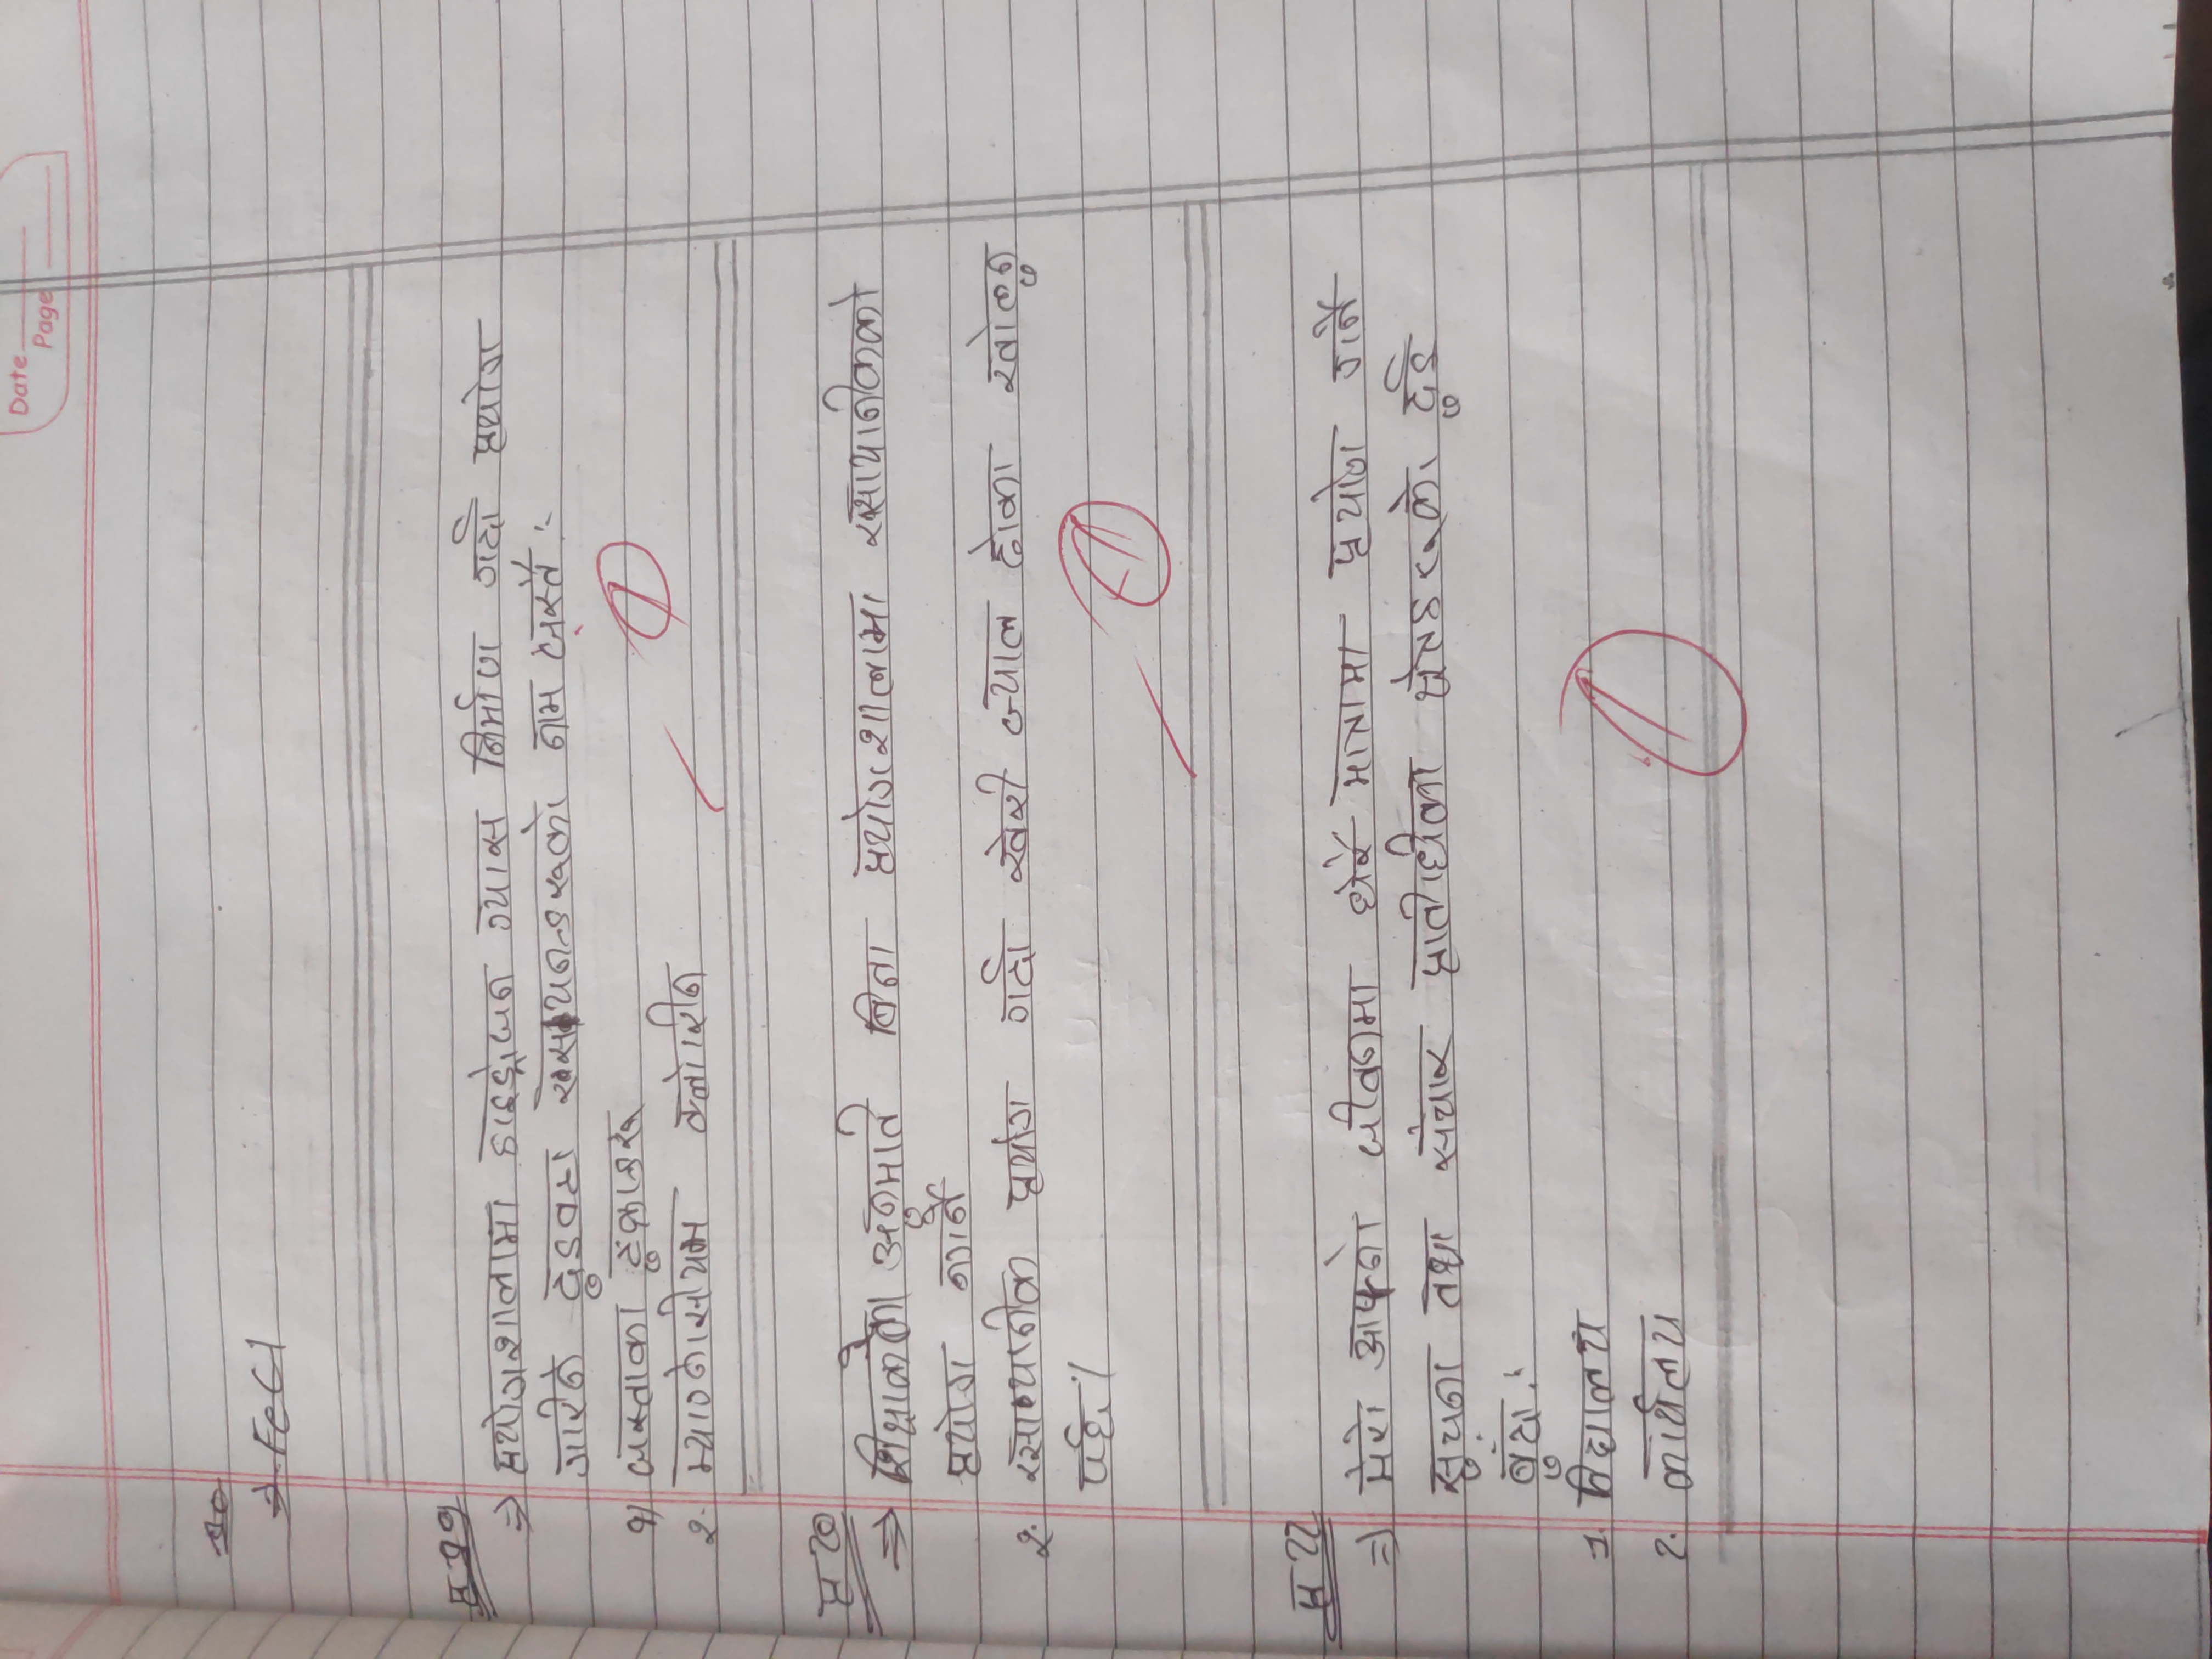 Date
Page
१०
⇒ FeCl
प्र १९
⇒ प्रयोगशालामा हाइड्रोजन ग्यास निर्माण गर्दा प्रयोग
गरिने दुइवटा रसायनहरूको नाम जस्तै :-
१) जस्ताका टुक्राहरू
२. म्याग्नेसीयम क्लोरीन
प्र 20
⇒ शिक्षाकको अनुमति बिना प्रयोगशालामा रसायानीकको
प्रयोग नगर्ने
२. रसायानीक प्रयोग गर्दा खेरी झ्याल ढोका खोल्नु
पर्छ।
प्र 22
⇒ मेरो आफ्नो जीवनमा धेरै मात्रामा प्रयोग गर्ने
सुचना तथा संचार प्रातीधीका क्षेत्रहरूको दुई
बुंदा :
1. विद्यालय
2. कार्यलय